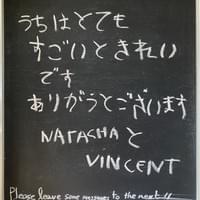 うちはとても
すごいときれい
です
ありがうとございます
NATASHA と
VINCENT
Please leave some messages to the next !!